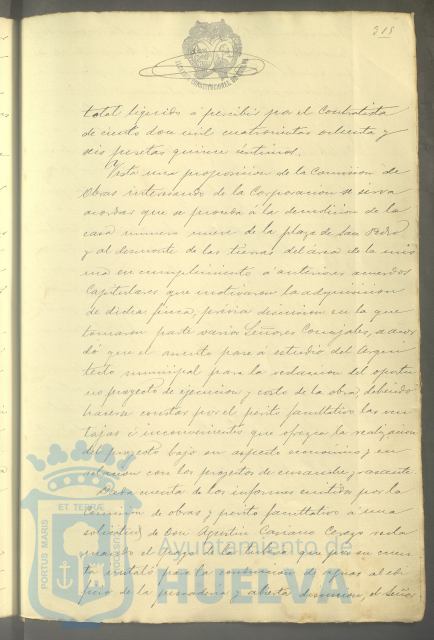 318
total líquido á percibir por el Contratista
de ciento dos mil cuatrocientas ochenta y
seis pesetas quince céntimos.
Vista una proposicion de la Comision de
Obras interesando de la Corporacion se sirva
acordar que se proceda á la demolicion de la
casa número nueve de la plaza de San Pedro
y al desmonte de las tierras del área de la mis
ma en cumplimiento á anteriores acuerdos
Capitulares que motivaron la adquisicion
de dicha finca, prévia discusion en la que
tomaron parte varios Señores Concejales, acor
dó que el asunto pase á estudio del Arqui
tecto municipal para la redaccion del oportu
no proyecto de ejecucion y costo de la obra, debiendo
hacerse constar por el perito facultativo las ven
tajas é inconvenientes que ofrezca la realizacion
del proyecto bajo su aspecto económico y en
relacion con los proyectos de ensanche y rasante
Dada cuenta de los informes emitidos por la
Comision de obras y perito facultativo á una
solicitud de Don Agustin Corazo recla
mando el pago de la tuberia que por su cuen
ta instaló para la conduccion de aguas al edi
ficio de la pescaderia y abierta discusion, el Señor
PORTUS MARIS
ET TERRÆ
CUSTODIA
Ayuntamiento de
HUELVA